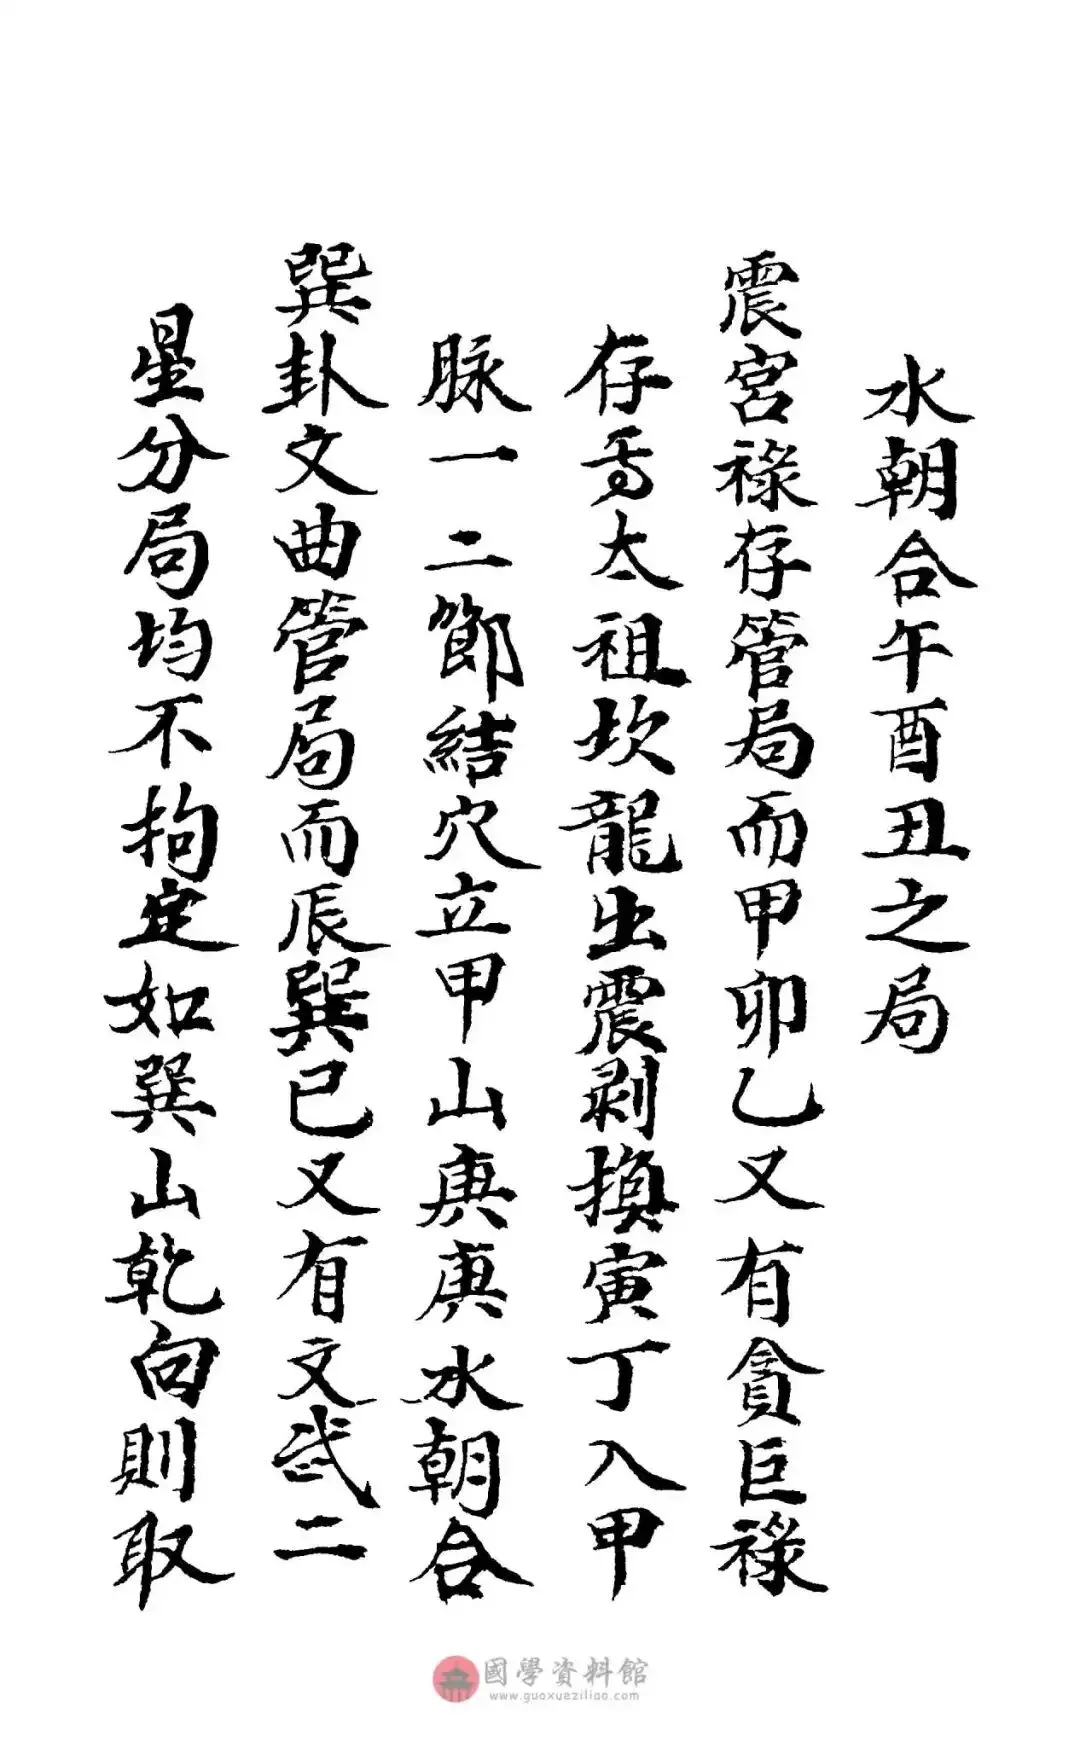 水朝合午酉丑之局
震宮祿存管局而甲卯乙又有貪巨祿
存爲太祖坎龍出震剥換寅丁入甲
脉一二節結穴立甲山庚庚水朝合
巽卦文曲管局而辰巽巳又有文武二
星分局均不拘定如巽山乾向則取
國學資料館
www.guoxueziliao.com